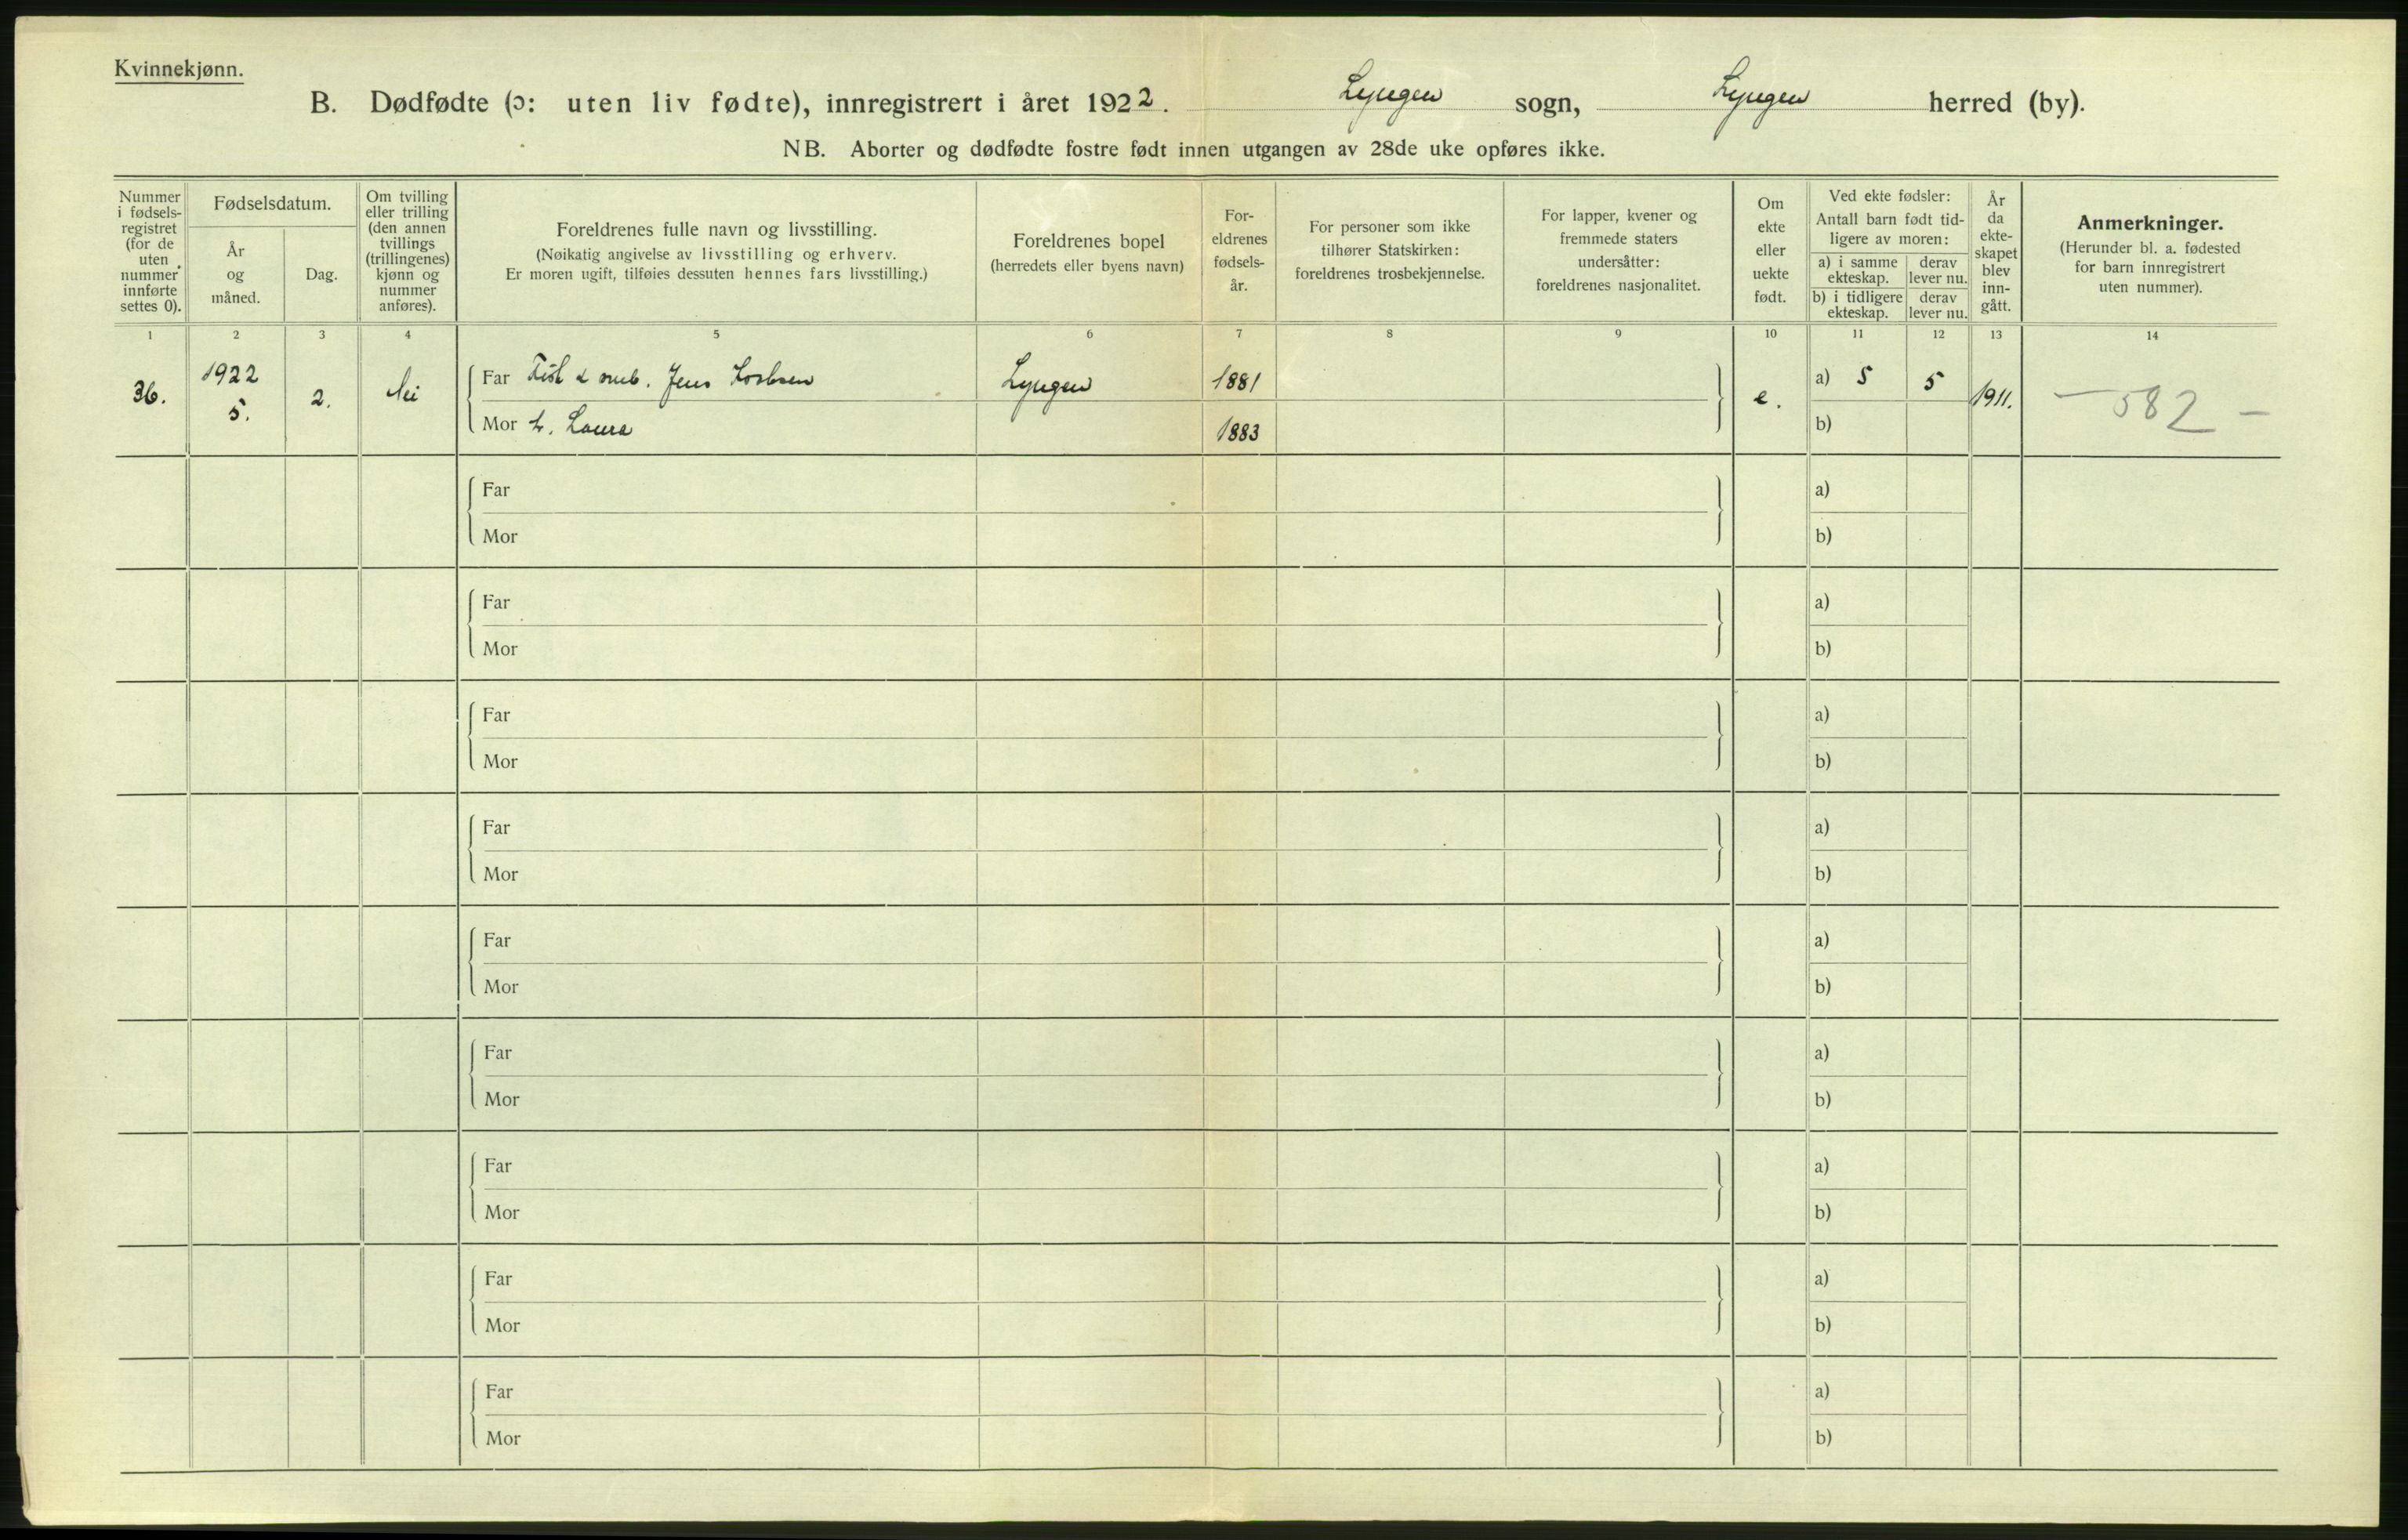 Kvinnekjønn.
B. Dødfødte (ɔ: uten liv fødte), innregistrert i året 1922. Lyngen sogn, Lyngen herred (by).
NB. Aborter og dødfødte fostre født innen utgangen av 28de uke opføres ikke.
Nummer i fødsels-registret (for de uten nummer innførte settes 0).
Fødselsdatum.
År og måned.
Dag.
Om tvilling eller trilling (den annen tvillings (trillingenes) kjønn og nummer anføres).
Foreldrenes fulle navn og livsstilling.
(Nøikatig angivelse av livsstilling og erhverv.
Er moren ugift, tilføies dessuten hennes fars livsstilling.)
Foreldrenes bopel
(herredets eller byens navn)
For-eldrenes fødsels-år.
For personer som ikke tilhører Statskirken: foreldrenes trosbekjennelse.
For lapper, kvener og fremmede staters undersåtter: foreldrenes nasjonalitet.
Om ekte eller uekte født.
Ved ekte fødsler:
Antall barn født tid-ligere av moren:
a) i samme ekteskap.
derav lever nu.
b) i tidligere ekteskap.
derav lever nu.
År da ekte-skapet blev inn-gått.
Anmerkninger.
(Herunder bl. a. fødested for barn innregistrert uten nummer).
1 2 3 4 5 6 7 8 9 10 11 12 13 14
36. 1922 5. 2. Nei
Far Jens Lyngen 1881 e. a) 5 5 1911. - 582 -
Mor h. Laura 1883 b)
Far a)
Mor b)
Far a)
Mor b)
Far a)
Mor b)
Far a)
Mor b)
Far a)
Mor b)
Far a)
Mor b)
Far a)
Mor b)
Far a)
Mor b)
Far a)
Mor b)